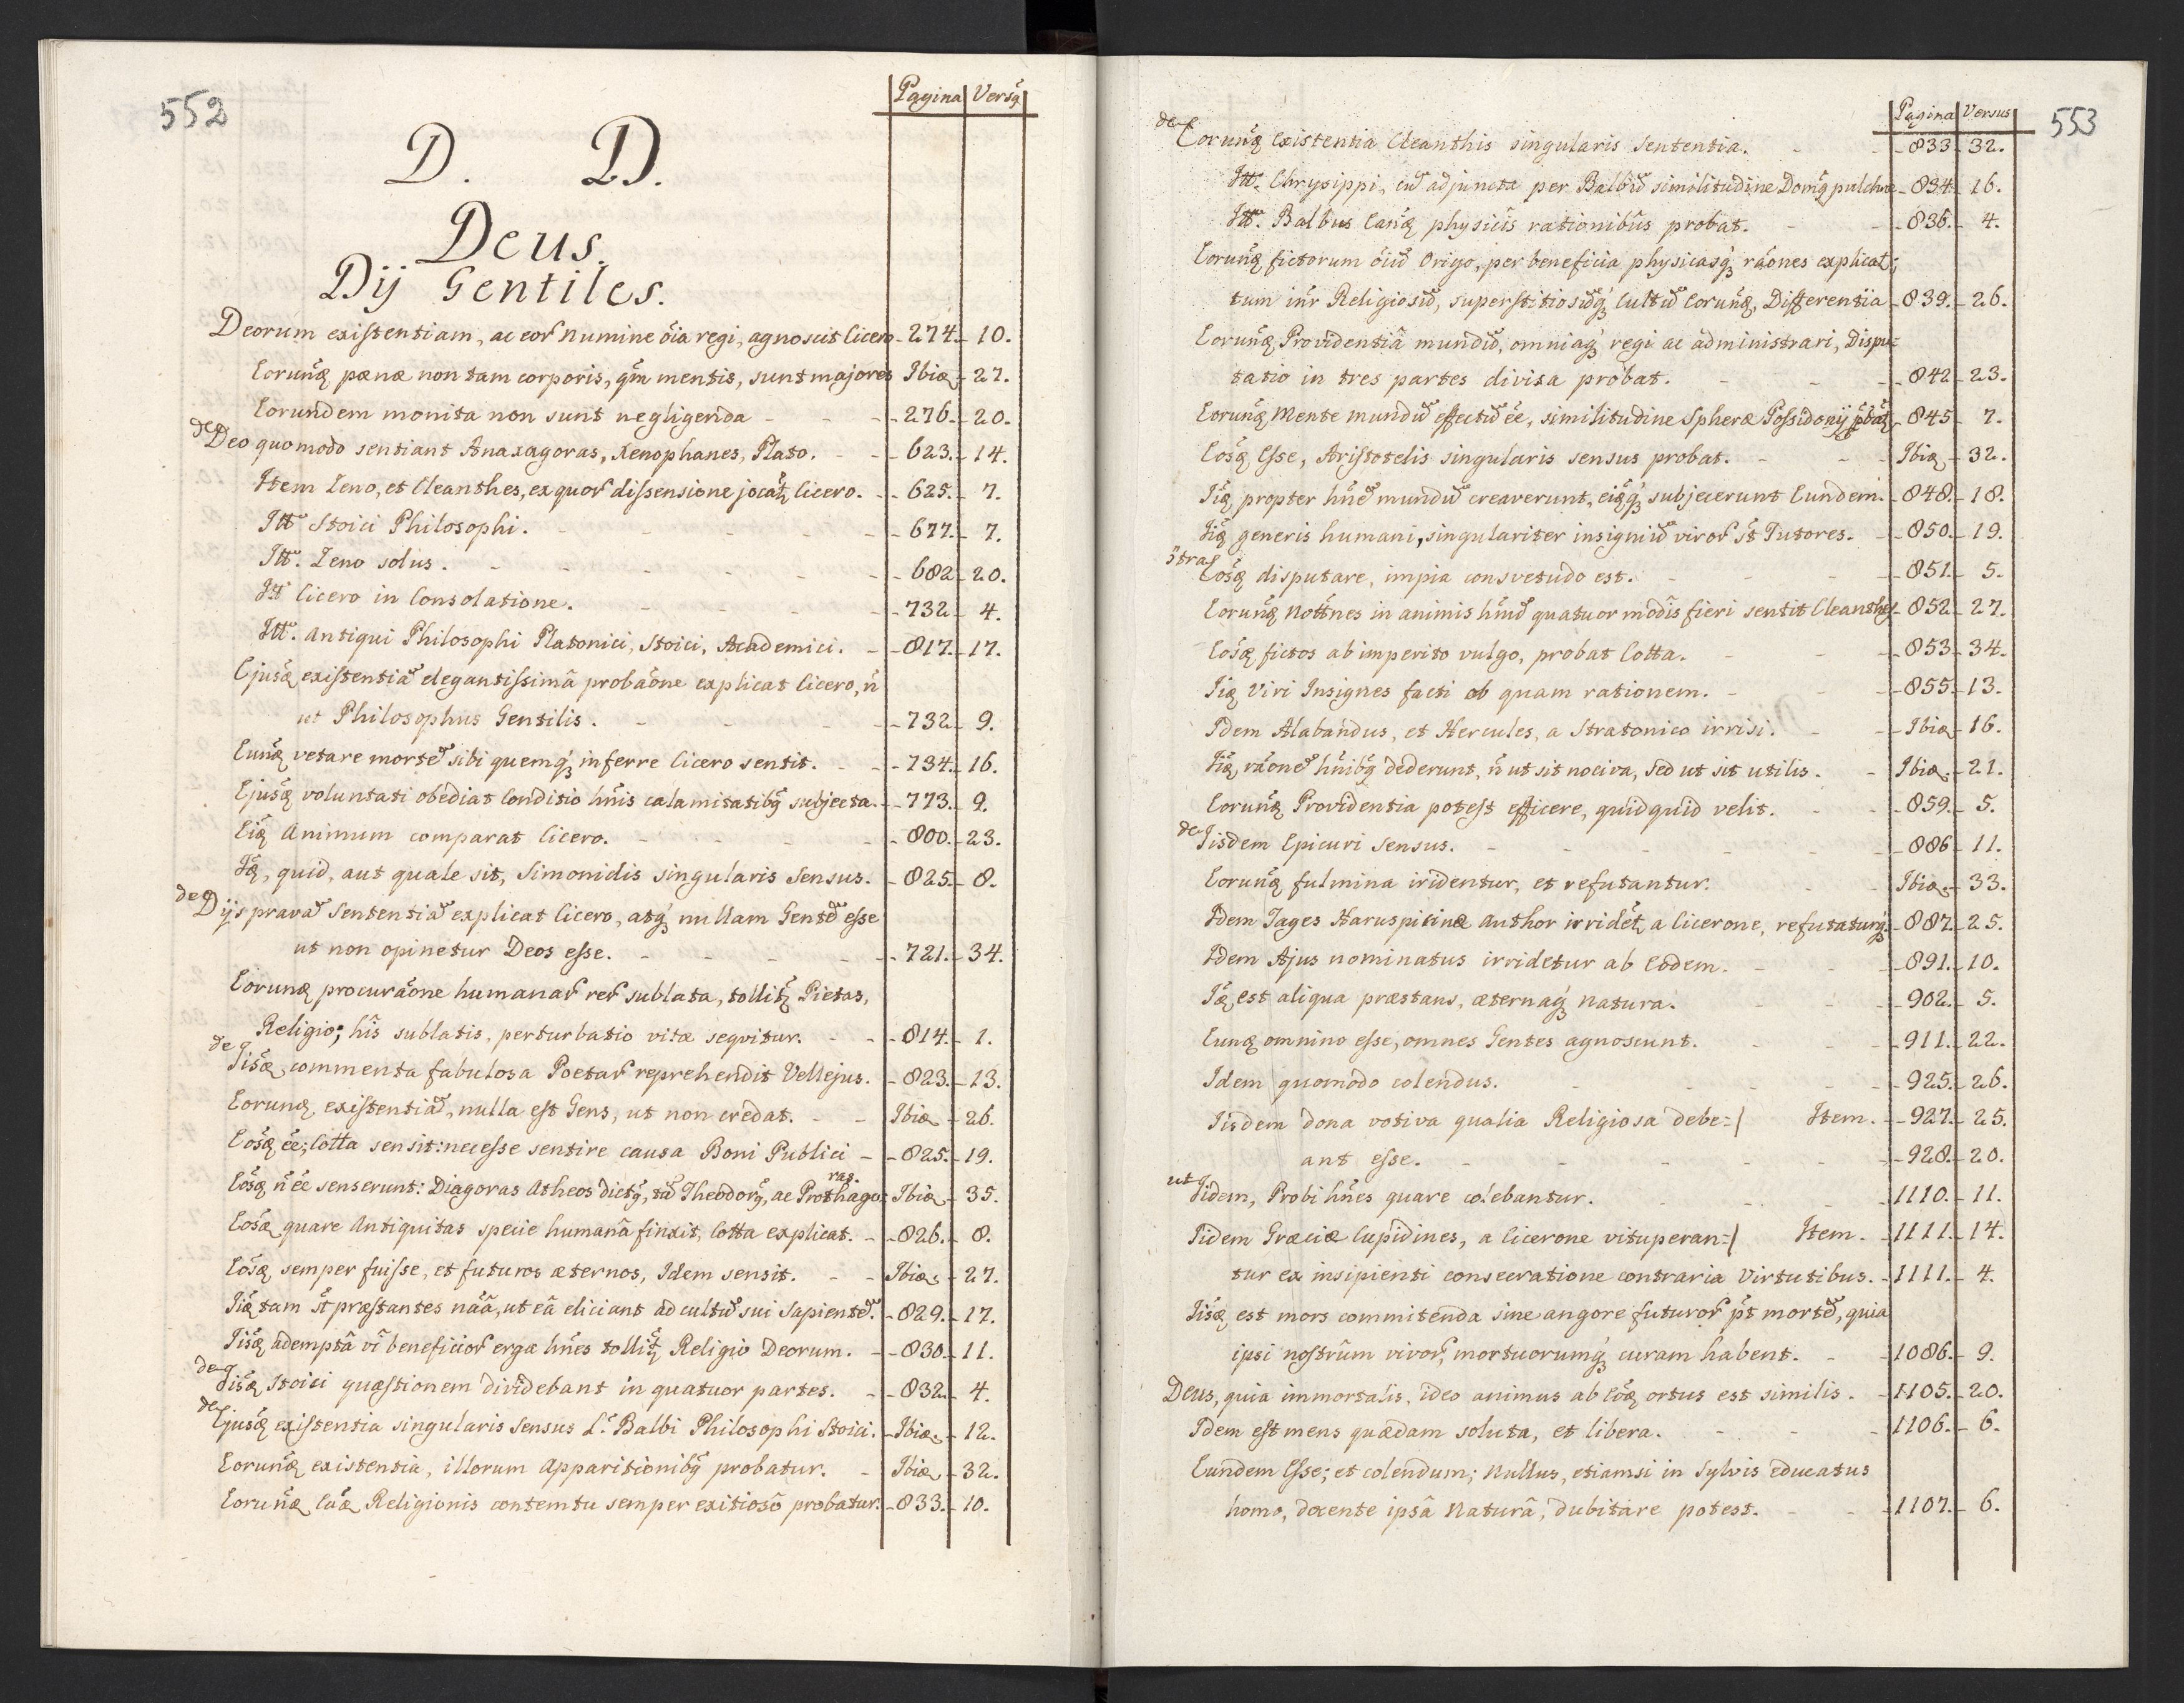 552
Pagina Versq̃
D. D.
Deus.
Dij Gentiles.
Deorum existentiam, ac eoꝝ numine oı̃a regi, agnoscit Cicero - 274. - 10.
Eorunꝗ pænæ non tam corporis, qm̃ mentis, sunt majores Ibiꝗ - 27.
Eorundem monita non sunt negligenda - - - 276. - 20.
de Deo quomodo sentiant Anaxagoras, Xenophanes, Plato. - - 623. - 14.
Item Zeno, et Cleanthes, ex quoꝝ dissensione jocat̃ Cicero. - 625. - 7.
Itt̃ Stoici Philosophi. - - - - - 677. - 7.
Itt̃. Zeno solus. - - - - - - 682 - 20.
Itt̃ Cicero in Consolatione. - - - - 732 - 4.
Itt̃. Antiqui Philosophi Platonici, Stoici, Academici. - - 817. - 17.
Ejusꝗ existentiã elegantissimâ probaõne explicat Cicero, ñ
ut Philosophus Gentilis. - - - - 732 - 9.
Eunꝗ vetare mortẽ sibi quemq́ʒ inferre Cicero sentit. - - 734. - 16.
Ejusꝗ voluntati obediat Conditio hñis calamitatibq̃ subjecta. - 773. - 9.
Eiꝗ Animum comparat Cicero. - - - - 800. - 23.
Iꝗ, quid, aut quale sit, Simonidis singularis Sensus. - 825. - 8.
de Dijs pravã Sententiã explicat Cicero, atq́ʒ nullam Gentẽ esse
ut non opinetur Deos esse. - - - - 721. - 34.
Eorunꝗ procuraõne humanaꝝ reꝝ sublata, tollit̃ Pietas,
Religio; hîs sublatis, perturbatio vitæ seqvitur. - - 814. - 1.
de Iisꝗ commenta fabulosa Poetaꝝ reprehendit Vellejus. - 823. - 13.
Eorunꝗ existentiã, nulla est Gens, ut non credat. - - Ibiꝗ - 26.
Eosꝗ eẽ; Cotta sensit: necesse sentire causa Boni Publici - - 825. - 19.
Eosꝗ ñ eẽ senserunt: Diagoras Atheos dictq̃, tũ Theodorq̃, ac Prothago- ras. Ibiꝗ - 35.
Eosꝗ quare Antiquitas specie humanâ finxit, Cotta explicat. - - 826. - 8.
Eosꝗ semper fuisse, et futuros æternos, Idem sensit. - - Ibiꝗ - 27.
Iiꝗ tam st̃ præstantes nãâ, ut eâ eliciant ad cultũ sui Sapientẽ. - 829. - 17.
Iisꝗ ademptâ vî beneficioꝝ erga hñes tollit̃ Religio Deorum. - - 830. - 11.
de Iisꝗ Stoici quæstionem dividebant in quatuor partes. - - 832. - 4.
de Ejusꝗ existentia singularis Sensus L. Balbi Philosophi Stoici. - Ibiꝗ - 12.
Eorunꝗ existentia, illorum Apparitionibq̃ probatur. - Ibiꝗ - 32.
Eorunꝗ Cãꝗ Religionis contemtu semper exitiosô probatur. - 833. - 10.
553
Pagina Versus
de Eorunꝗ Existentia Cleanthis singularis Sententia. - - 833 - 32.
Itt̃. Chrysippi, cũ adjuncta per Balbũ similitudine Domq̃ pulchræ - 834. - 16.
Itt̃. Balbus Eanꝗ physicîs rationibûs probat. - - 836. - 4.
Eorunꝗ fictorum oı̃ũ Origo, per beneficia physicasq́ʒ raõnes explicat;
tum iñr Religiosũ, superstitiosũq́ʒ Cultũ Eorunꝗ, Differentia - 839. - 26.
Eorunꝗ Providentiâ mundũ, omniaq́ʒ regi ac administrari, Dispu-
tatio in tres partes divisa probat. - - - 842 - 23.
Eorunꝗ Mente mundũ effectũ eẽ, similitudine Spheræ Possidonij p̃bat̃ - 845 - 7.
Eosꝗ Esse, Aristotelis singularis sensus probat. - - - Ibiꝗ - 32.
Iiꝗ propter hñes mundũ creaverunt, eiꝗq́ʒ subjecerunt Eundem. - 848. - 18.
Iiꝗ generis humani, singulariter insigniũ viroꝝ st̃ Tutores. - 850. - 19.
c̃tra Eosꝗ disputare, impia consvetudo est. - - - 851. - 5.
Eorunꝗ Nott̃nes in animis hñiũ quatuor modîs fieri sentit Cleanthes - 852 - 27.
Eosꝗ fictos ab imperito vulgo, probat Cotta. - - 853 - 34.
Iiꝗ Viri Insignes facti ob quam rationem. - - - 855. - 13.
Idem Alabandus, et Hercules, a Stratonico irrisi. - - Ibiꝗ - 16.
Iiꝗ raõnẽ hñibq̃ dederunt, ñ ut sit nociva, sed ut sit utilis. - Ibiꝗ. - 21.
Eorunꝗ Providentia potest efficere, quidquid velit. - - 859. - 5.
de Iisdem Epicuri Sensus. - - - - - 886 - 11.
Eorunꝗ fulmina iridentur, et refutantur. - - Ibiꝗ. - 33.
Idem Tages Haruspicinæ Author irridet̃ a Cicerone, refutaturq́ʒ - 887. - 25.
Idem Ajus nominatus irridetur ab Eodem. - - 891. - 10.
Iꝗ est aliqua præstans, æternaq́ʒ Natura. - - - 902. - 5.
Eunꝗ omnino esse, omnes Gentes agnoscunt. - - - 911. - 22.
Idem quomodo colendus. - - - - - 925. - 26.
Iisdem dona votiva qualia Religiosa debe- Item. - 927. - 25.
ant esse. - - - - - - 928. - 20.
ut Iidem, Probi hñes quare colebantur. - - - - 1110. - 11.
Iidem Græciæ Cupidines, a Cicerone vituperan- Item. - 1111. - 14.
tur ex insipienti consecratione contraria Virtutibus. - 1111. - 4.
Iisꝗ est mors commitenda sine angore futuroꝝ p̃t mortẽ, quia
ipsi nostrûm vivoꝝ, mortuorumq́ʒ curam habent. - - 1086. - 9.
Deus, quia immortalis, ideo animus ab Eoꝗ ortus est similis. - 1105. - 20.
Idem est mens quædam soluta, et libera. - - - 1106. - 6.
Eundem Esse; et colendum; Nullus, etiamsi in Sylvis educatus
homo, docente ipsâ Naturâ, dubitare potest. - - - 1107. - 6.